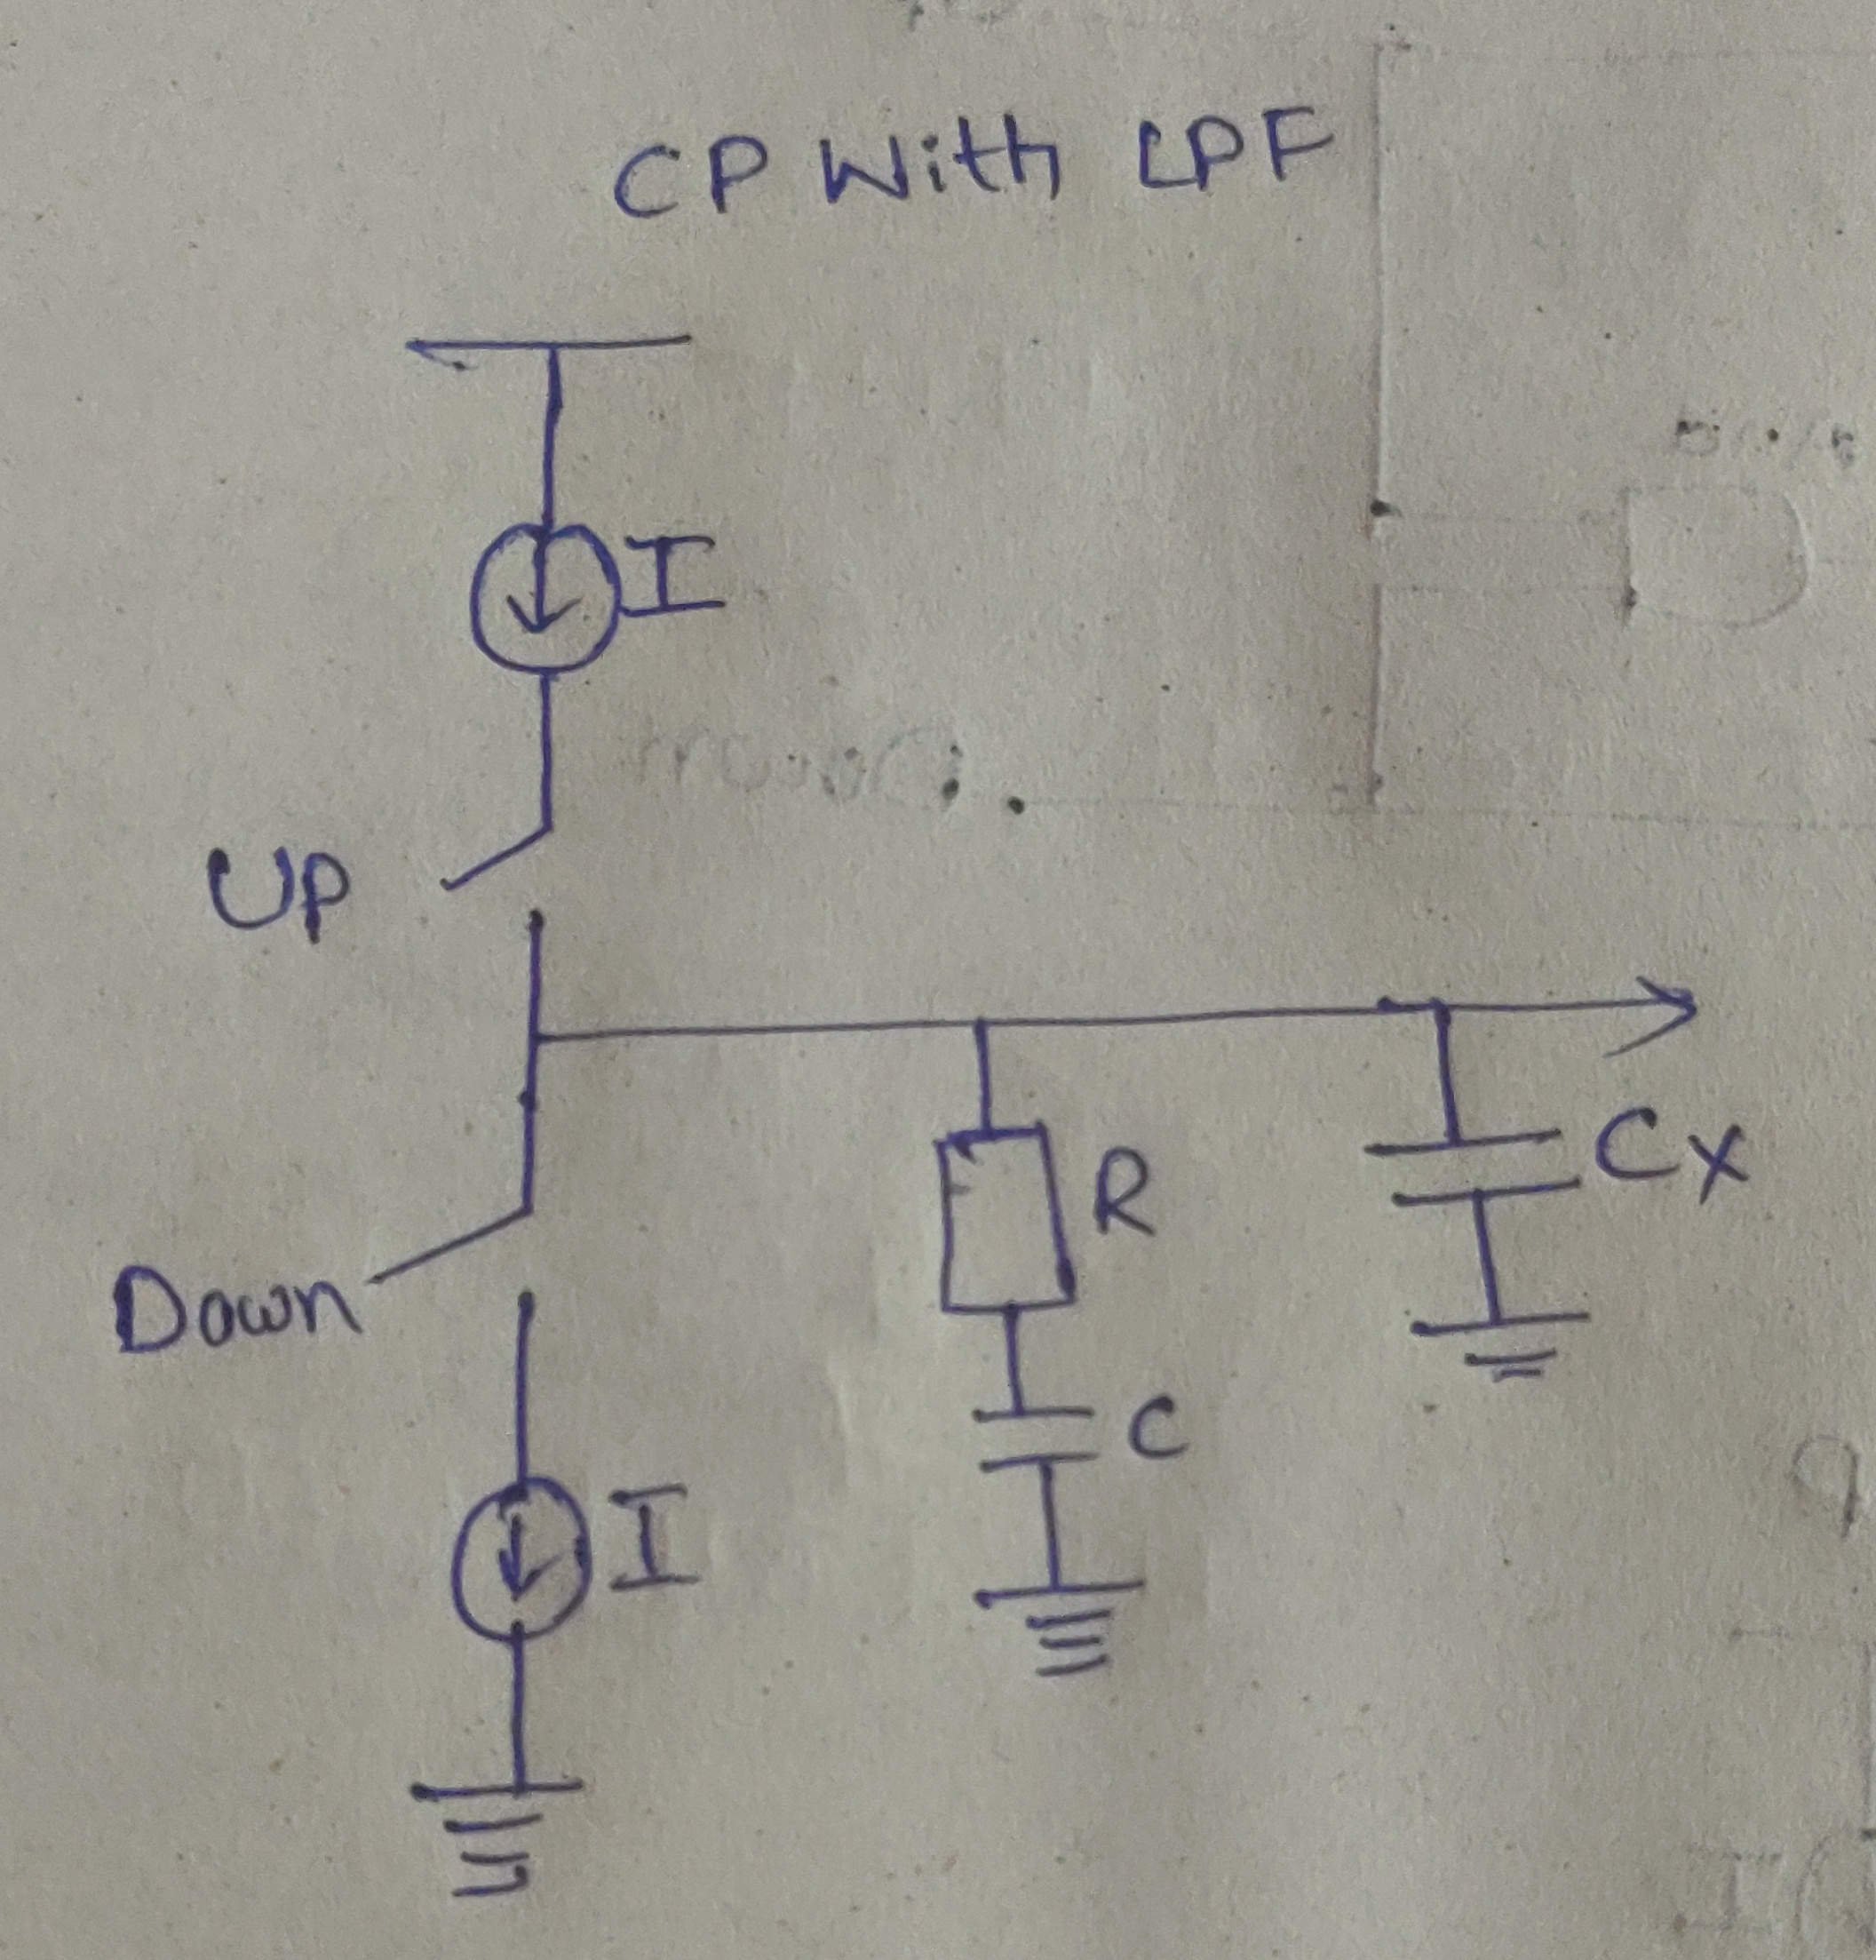 CP With LPF
I
UP
R
Cx
Down
C
I